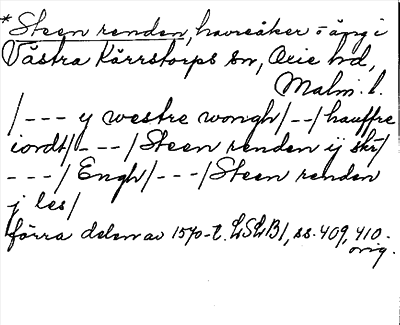 *Steen renden, havreåker o äng i
Västra Kärrstorps sn, Oxie hd,
Malm. l.
/--- y westre wongh/--/hauffre
iordt/---/Steen renden ij skr/
---/Engh/---/Steen renden
j les/
förra delen av 1570-t. LSLB1, ss. 409, 410.
orig.